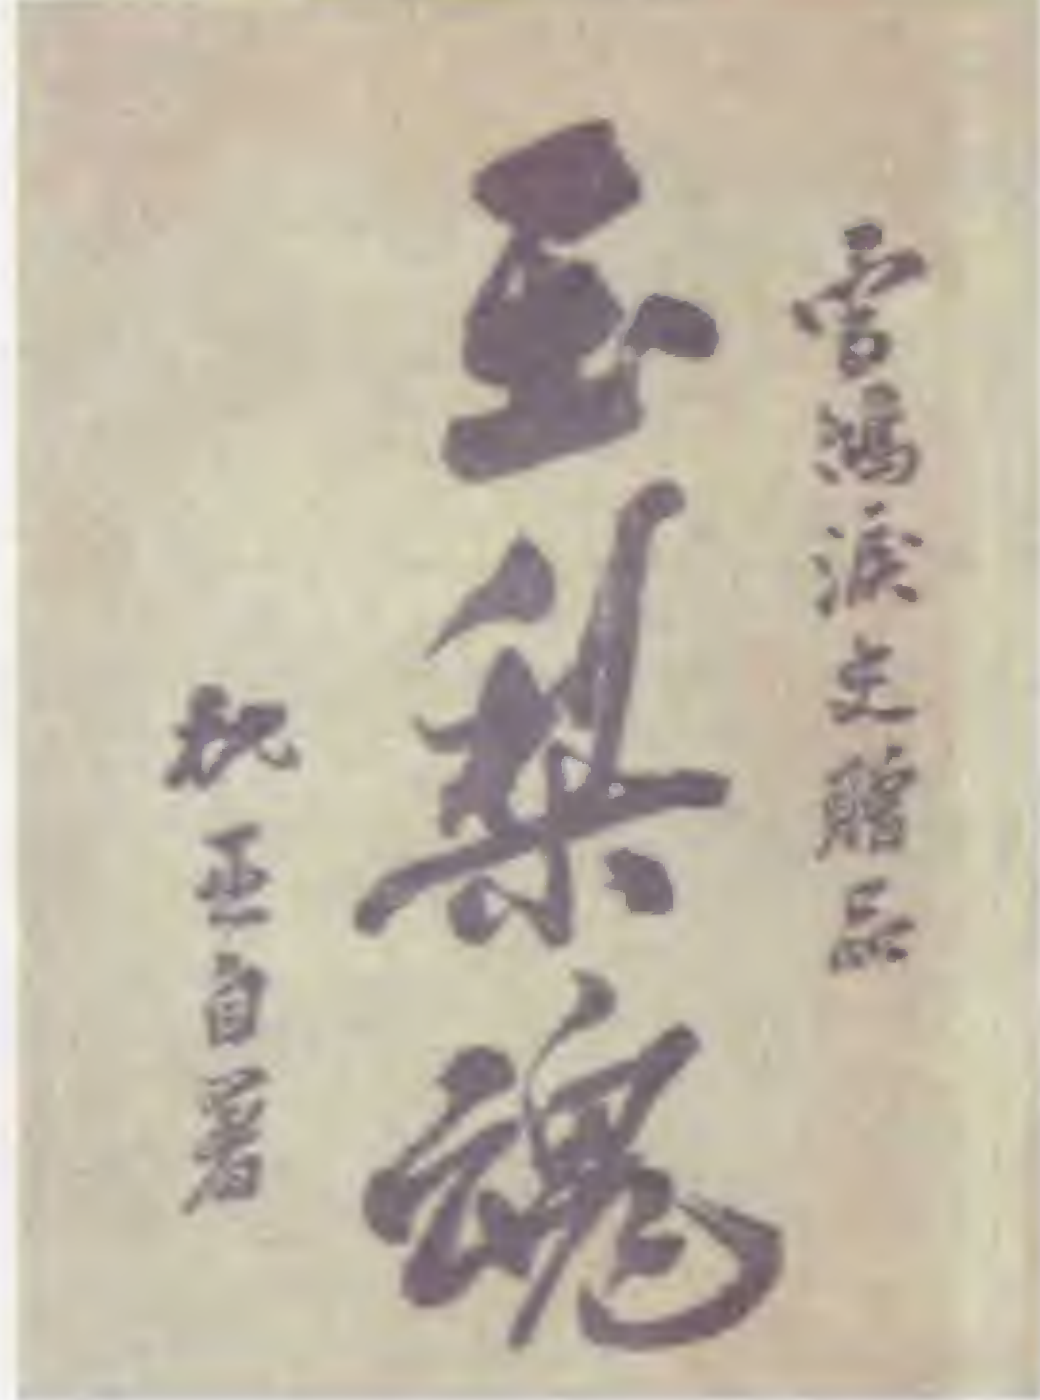 雪鴻淚史贈品
玉梨魂
枕亞自署